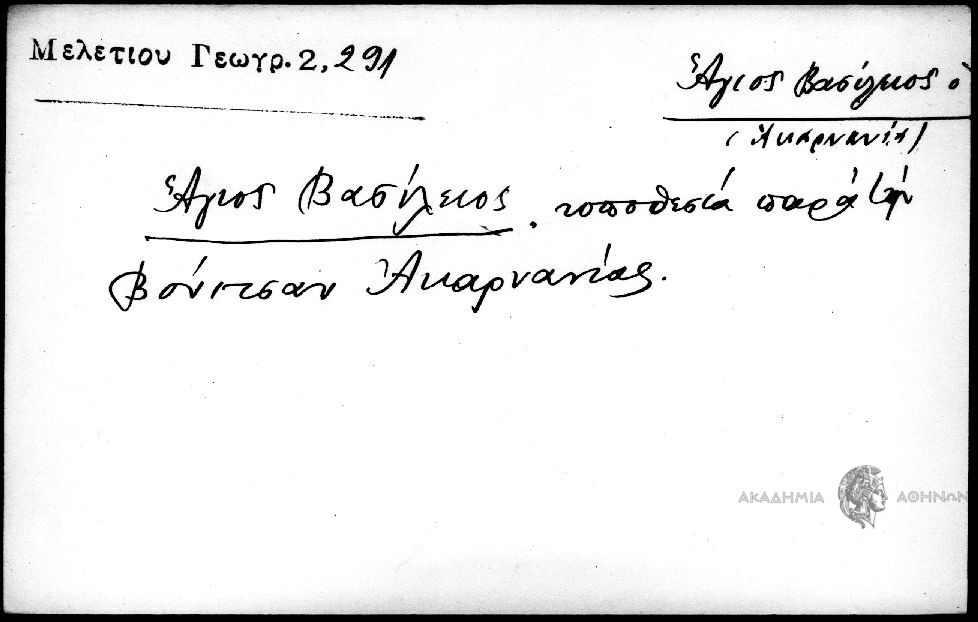 Μελετιου Γεωγρ. 2, 291
Ἅγιος Βασίλειος ὁ
(Ἀκαρνανία)
Ἅγιος Βασίλειος. τοποθεσία παρὰ τὴν
Βόνιτσαν Ἀκαρνανίας.
ΑΚΑΔΗΜΙΑ ΑΘΗΝΩΝ